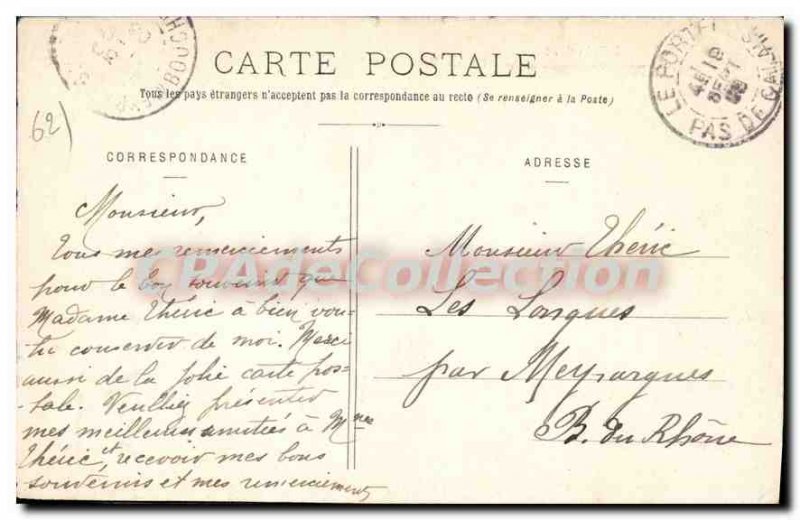 CARTE POSTALE
Tous les pays étrangers n'acceptent pas la correspondance au recto (Se renseigner à la Poste)
62)
CORRESPONDANCE
Monsieur,
Tous mes remerciements
pour le bon souvenir que
Madame Théric a bien vou-
lu conserver de moi. Merci
aussi de la jolie carte pos-
tale. Veuillez présenter
mes meilleures amitiés à Mmes
Théric, et recevoir mes bons
souvenirs et mes remerciements
ADRESSE
Monsieur Théric
Les Longues
par Meyrargues
B. du Rhône
LE PORTEL
PAS DE CALAIS
18
SEPT
CPAdeCollection